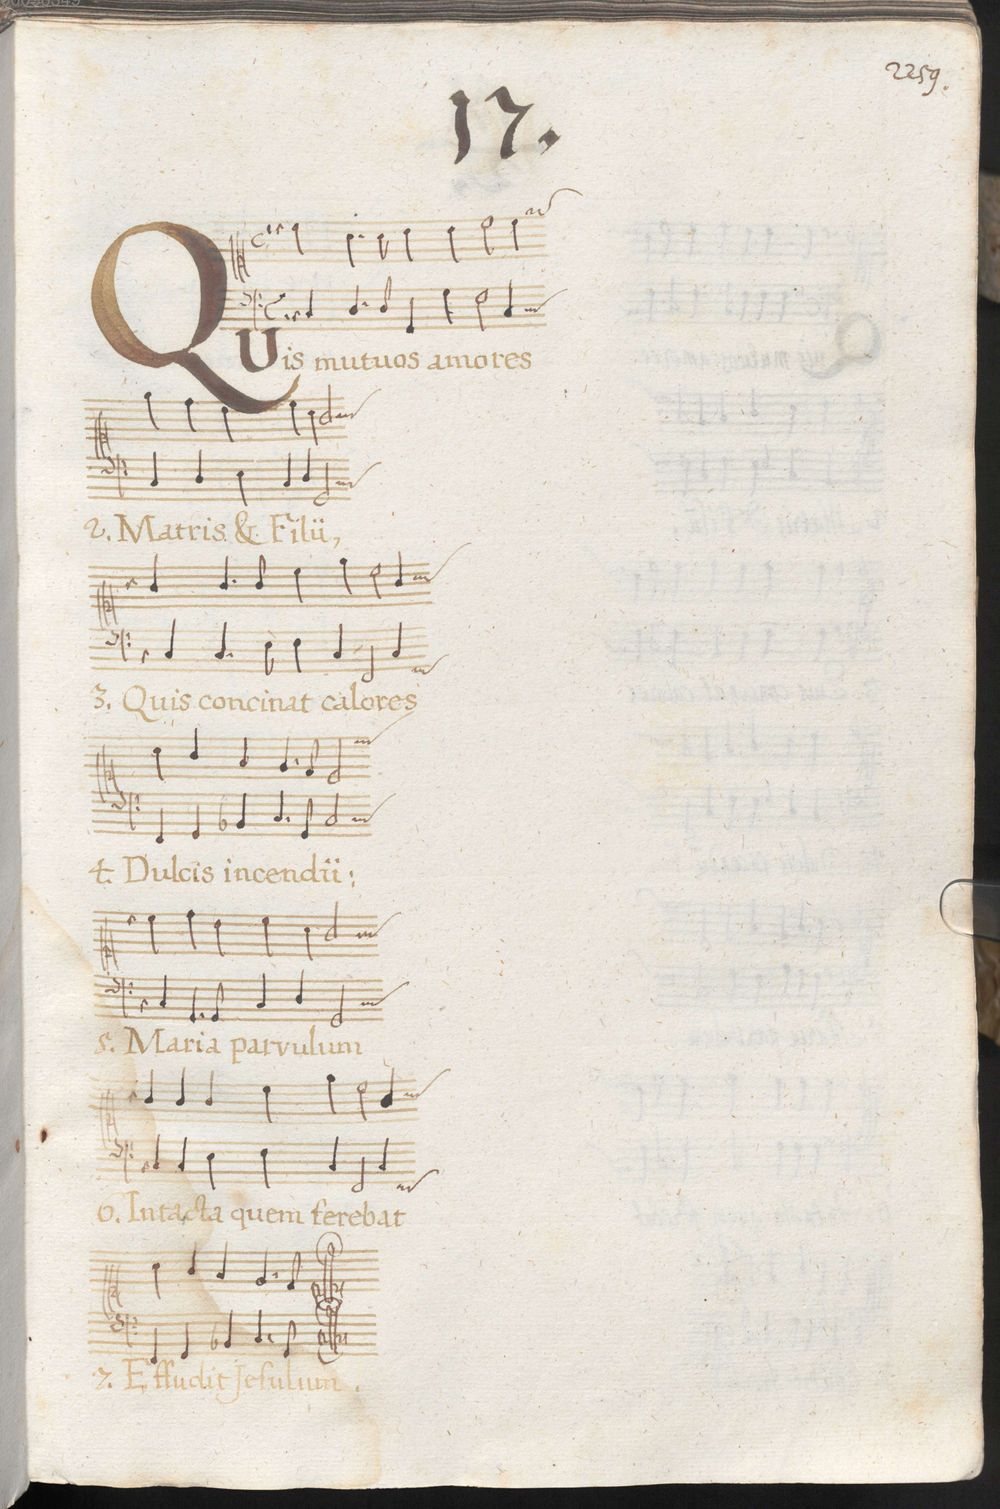 2259.
17.
Quis mutuos amores
2. Matris & Filii,
3. Quis concinat calores
4. Dulcis incendii:
5. Maria parvulum
6. Intacta quem ferebat
7. Effudit Jesulum.